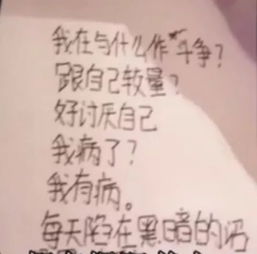 我在与什么作斗争?
跟自己较量?
好讨厌自己
我病了?
我有病。
每天陷在黑暗的沼